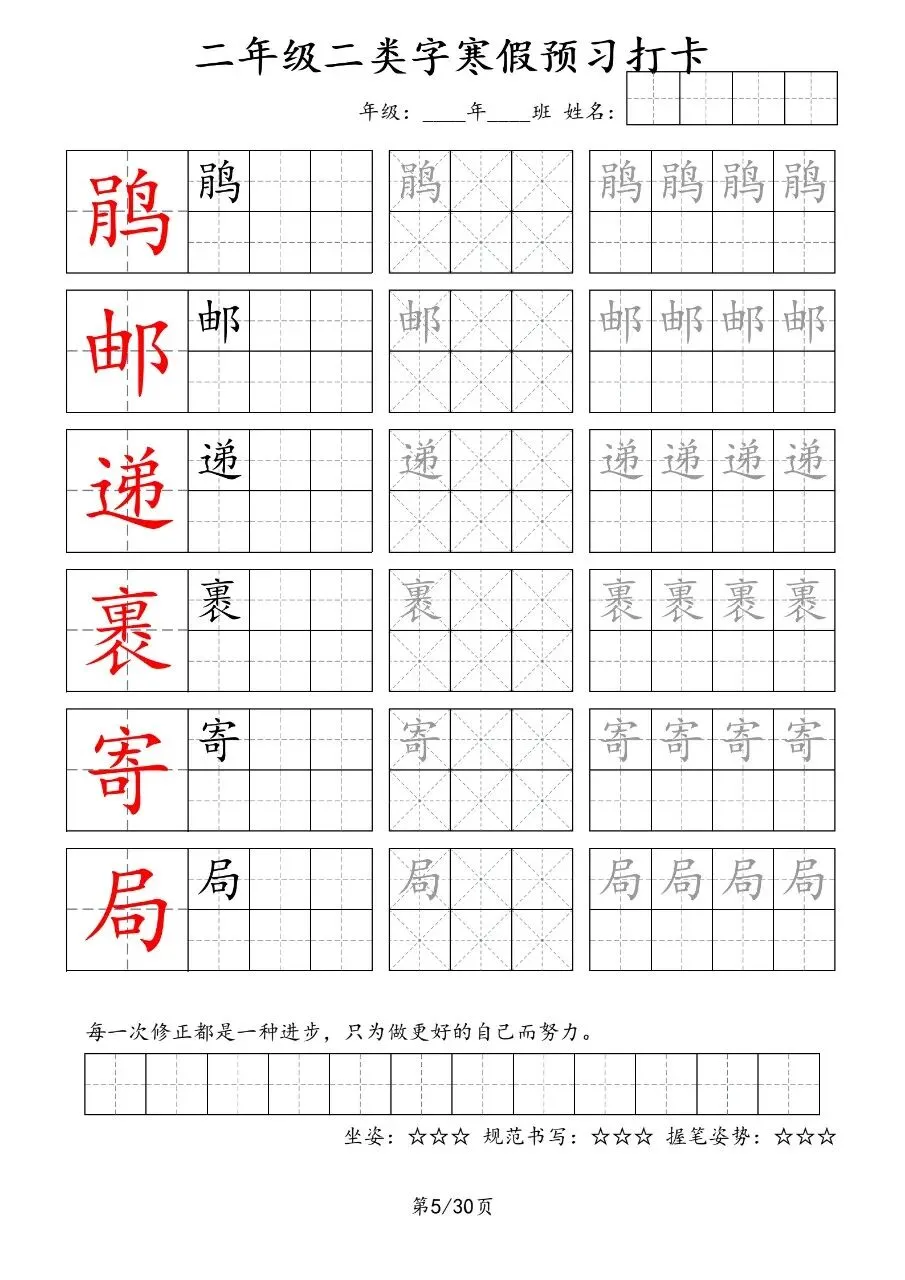 二年级二类字寒假预习打卡
年级：____年____班 姓名：
鹃 鹃 鹃 鹃 鹃 鹃 鹃
邮 邮 邮 邮 邮 邮 邮
递 递 递 递 递 递 递
裹 裹 裹 裹 裹 裹 裹
寄 寄 寄 寄 寄 寄 寄
局 局 局 局 局 局 局
每一次修正都是一种进步，只为做更好的自己而努力。
坐姿：☆☆☆ 规范书写：☆☆☆ 握笔姿势：☆☆☆
第5/30页